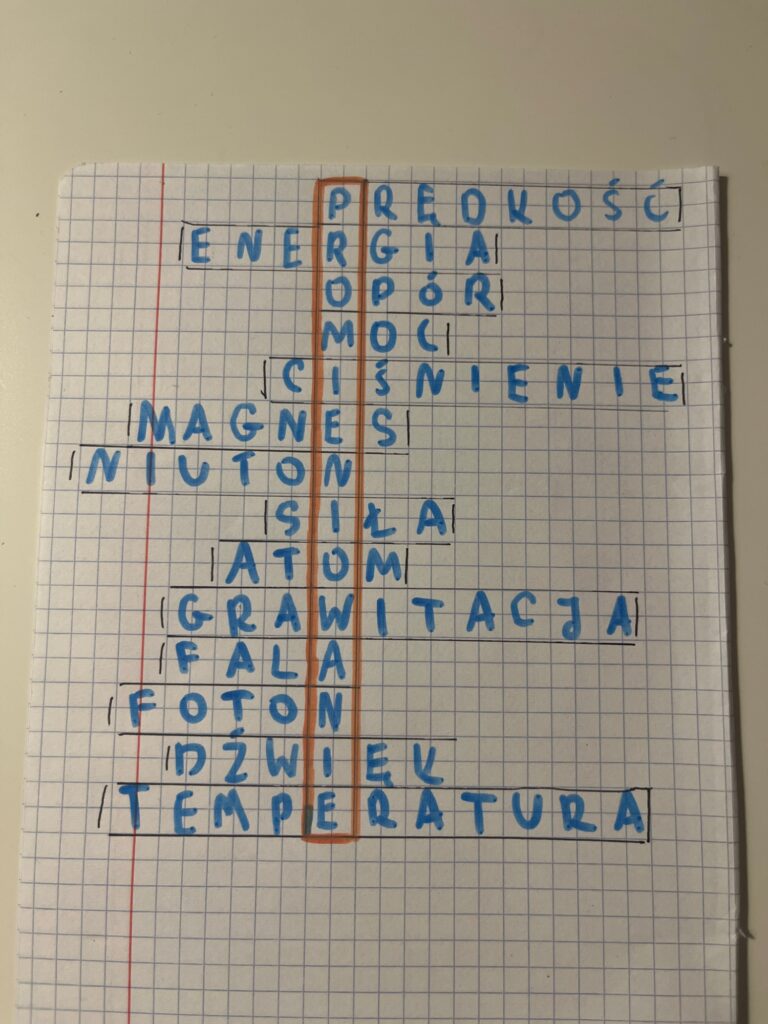 PRĘDKOŚĆ
ENERGIA
OPÓR
MOC
CIŚNIENIE
MAGNES
NIUTON
SIŁA
ATOM
GRAWITACJA
FALA
FOTON
DŹWIĘK
TEMPERATURA